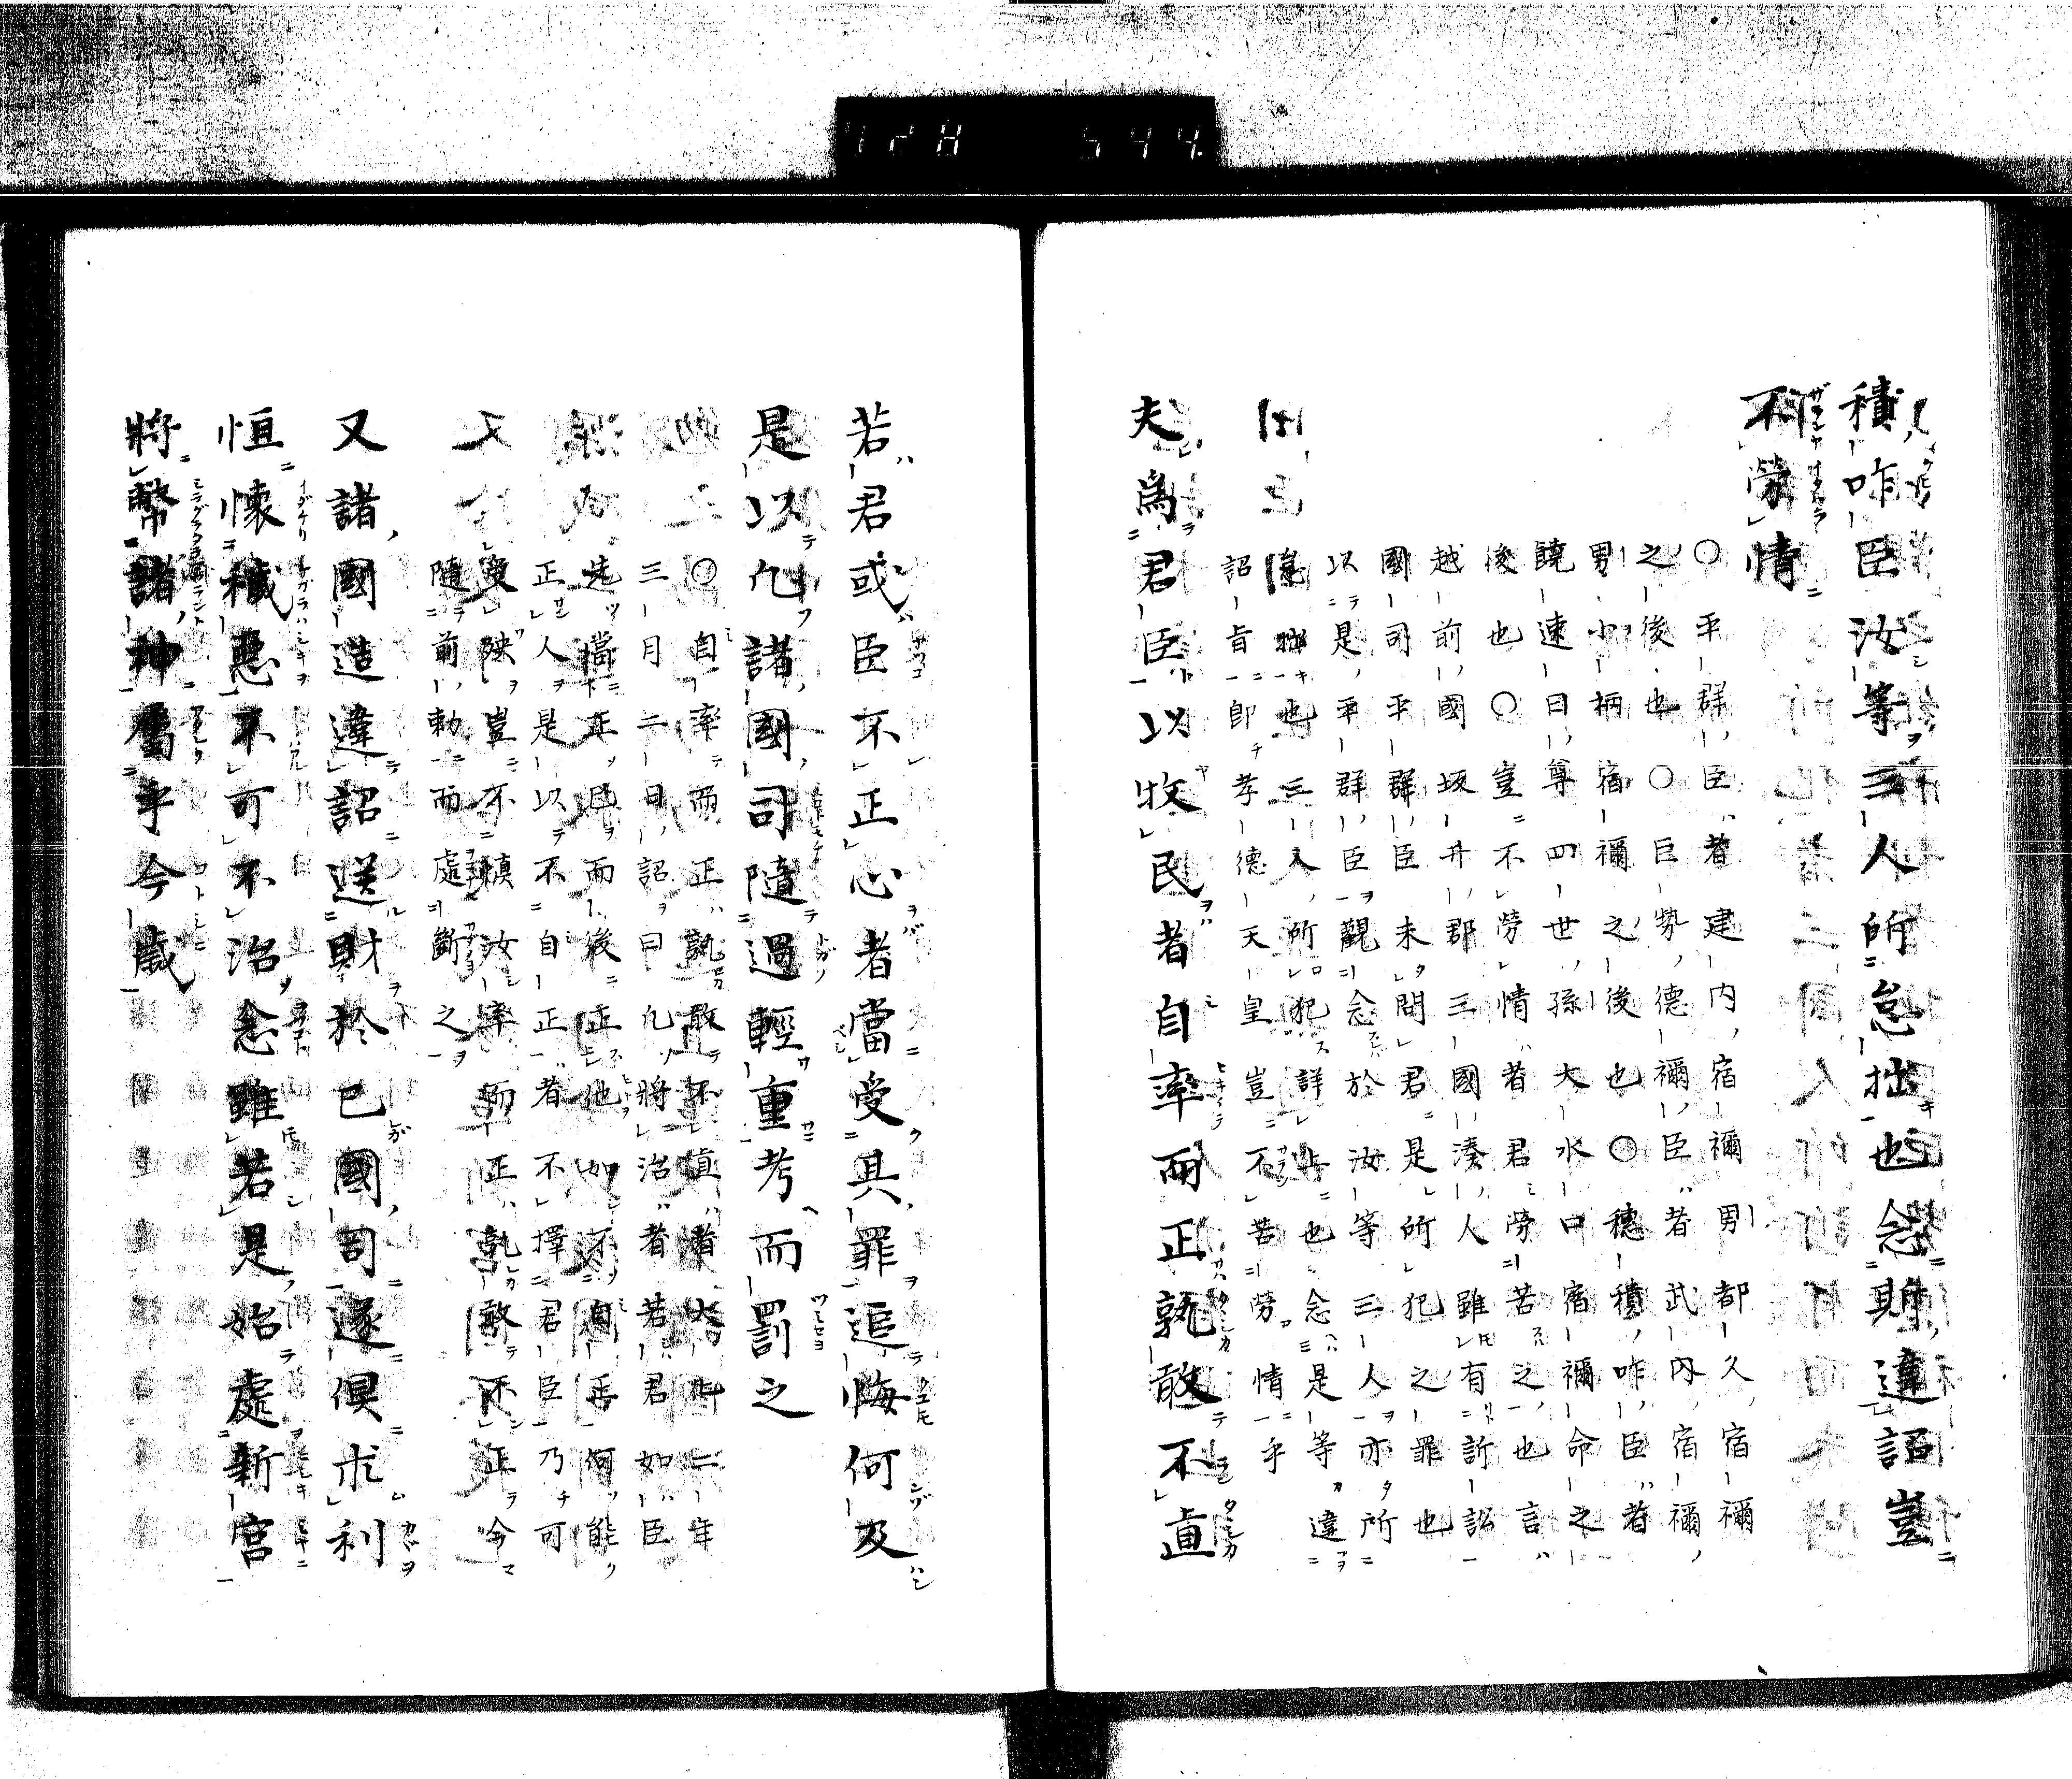 積咋臣汝等三人所怠拙也念斯違詔豈
不勞情
○平群臣者建内宿禰男都久宿禰
之後也○巨勢德禰臣者武内宿禰
男小柄宿禰之後也○穗積咋臣者
饒速日尊四世孫大水口宿禰命之
後也○豈不勞情者君勞苦之也言
越前國坂井郡三國湊人雖有訴訟
國司平群臣未問君是所犯之罪也
以是平群臣觀念於汝等三人亦所
怠拙也三人所犯詳也念是等違
詔旨卽孝德天皇豈不苦勞情乎
夫爲君臣以牧民者自率而正孰敢不直
若君或臣不正心者當受其罪追悔何及
是以凢諸國司隨過輕重考而罰之
○自率而正孰敢不直者大化二年
三月二日詔曰凢將治者若君如臣
先當正己而後正他如不自正何能
正人是以不自正者不擇君臣乃可
受殃豈不愼汝率而正孰敢不正今
隨前勅而處斷之
又諸國造違詔送財於己國司遂俱求利
恒懷穢惡不可不治念雖若是始處新宮
將幣諸神屬乎今歲